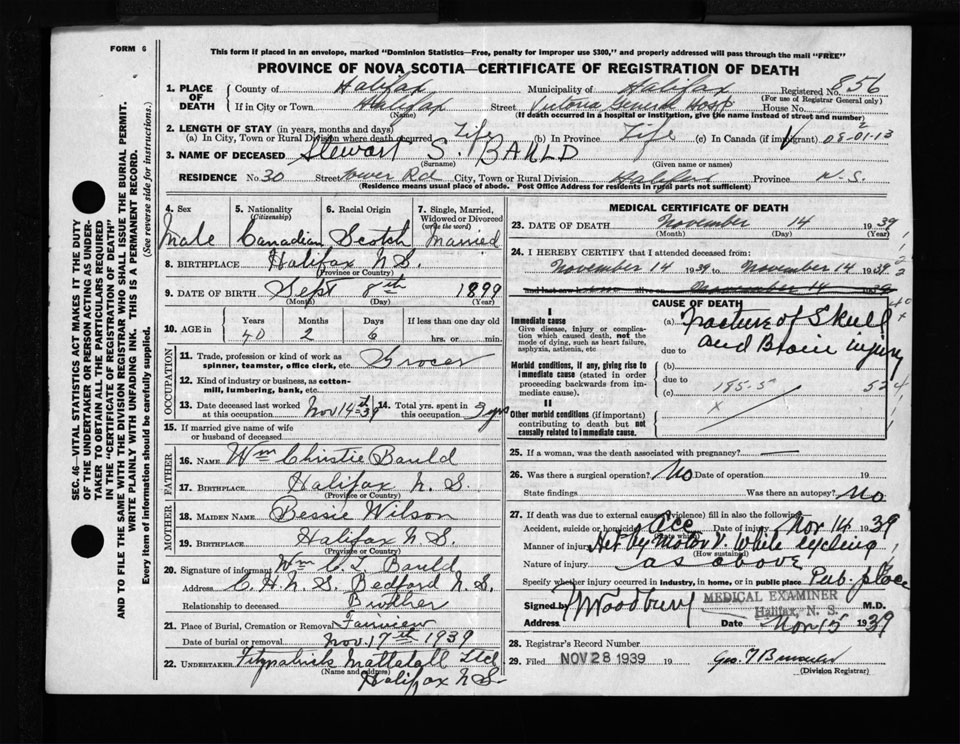 FORM 6
This form if placed in an envelope, marked "Dominion Statistics—Free, penalty for improper use $300," and properly addressed will pass through the mail "FREE"
PROVINCE OF NOVA SCOTIA—CERTIFICATE OF REGISTRATION OF DEATH
1. PLACE OF DEATH County of Halifax Municipality of Halifax Registered No. 856
(For use of Registrar General only)
If in City or Town Halifax Street Victoria General Hosp House No.
(Name) (If death occurred in a hospital or institution, give the name instead of street and number)
2. LENGTH OF STAY (in years, months and days)
(a) In City, Town or Rural Division where death occurred Life (b) In Province Life (c) In Canada (if immigrant) 08-01-13
3. NAME OF DECEASED Stewart S. BAULD
(Surname) (Given name or names)
RESIDENCE No 30 Street Tower Rd City, Town or Rural Division Halifax Province N.S.
(Residence means usual place of abode. Post Office Address for residents in rural parts not sufficient)
SEC. 46—VITAL STATISTICS ACT MAKES IT THE DUTY
OF THE UNDERTAKER OR PERSON ACTING AS UNDER-
TAKER TO OBTAIN ALL THE PARTICULARS REQUIRED
IN THE "CERTIFICATE OF REGISTRATION OF DEATH"
AND TO FILE THE SAME WITH THE DIVISION REGISTRAR WHO SHALL ISSUE THE BURIAL PERMIT.
WRITE PLAINLY WITH UNFADING INK. THIS IS A PERMANENT RECORD.
Every item of information should be carefully supplied. (See reverse side for instructions.)
4. Sex 5. Nationality (Citizenship) 6. Racial Origin 7. Single, Married, Widowed or Divorced (write the word)
Male Canadian Scotch Married
8. BIRTHPLACE Halifax N.S.
(Province or Country)
9. DATE OF BIRTH Sept 8th 1899
(Month) (Day) (Year)
10. AGE in Years Months Days If less than one day old
40 2 6 hrs. or min.
OCCUPATION
11. Trade, profession or kind of work as spinner, teamster, office clerk, etc. Grocer
12. Kind of industry or business, as cotton-mill, lumbering, bank, etc.
13. Date deceased last worked at this occupation Nov 14th 39 14. Total yrs. spent in this occupation 2 yrs
15. If married give name of wife or husband of deceased
FATHER
16. NAME Wm Christie Bauld
17. BIRTHPLACE Halifax N.S.
(Province or Country)
MOTHER
18. MAIDEN NAME Bessie Wilson
19. BIRTHPLACE Halifax N.S.
(Province or Country)
20. Signature of informant Wm C. L. Bauld
Address C.H.N.S. Bedford N.S.
Relationship to deceased Brother
21. Place of Burial, Cremation or Removal Fairview
Date of burial or removal Nov. 17th 1939
22. UNDERTAKER Fitzpatricks Mattatall Ltd
(Name and address) Halifax N.S.
MEDICAL CERTIFICATE OF DEATH
23. DATE OF DEATH November 14 1939
(Month) (Day) (Year)
24. I HEREBY CERTIFY that I attended deceased from:
November 14 1939 to November 14 1939
November 14 1939
CAUSE OF DEATH
I
Immediate cause
Give disease, injury or complication which caused death, not the mode of dying, such as heart failure, asphyxia, asthenia, etc
(a) Fracture of Skull
due to and Brain injury
Morbid conditions, if any, giving rise to immediate cause (stated in order proceeding backwards from immediate cause)
(b)
due to 195-5
(c)
II
Other morbid conditions (if important) contributing to death but not causally related to immediate cause.
25. If a woman, was the death associated with pregnancy? —
26. Was there a surgical operation? No Date of operation 19
State findings Was there an autopsy? No
27. If death was due to external causes (violence) fill in also the following
Accident, suicide or homicide Acc Date of injury Nov 14 1939
(State which)
Manner of injury Hit by Motor V. While cycling
(How sustained)
Nature of injury as above
Specify whether injury occurred in industry, in home, or in public place Pub. place
Signed by Woodbury M.D.
MEDICAL EXAMINER
Halifax, N. S.
Address Date Nov 15 1939
28. Registrar's Record Number
29. Filed NOV 28 1939 19 Geo.
(Division Registrar)